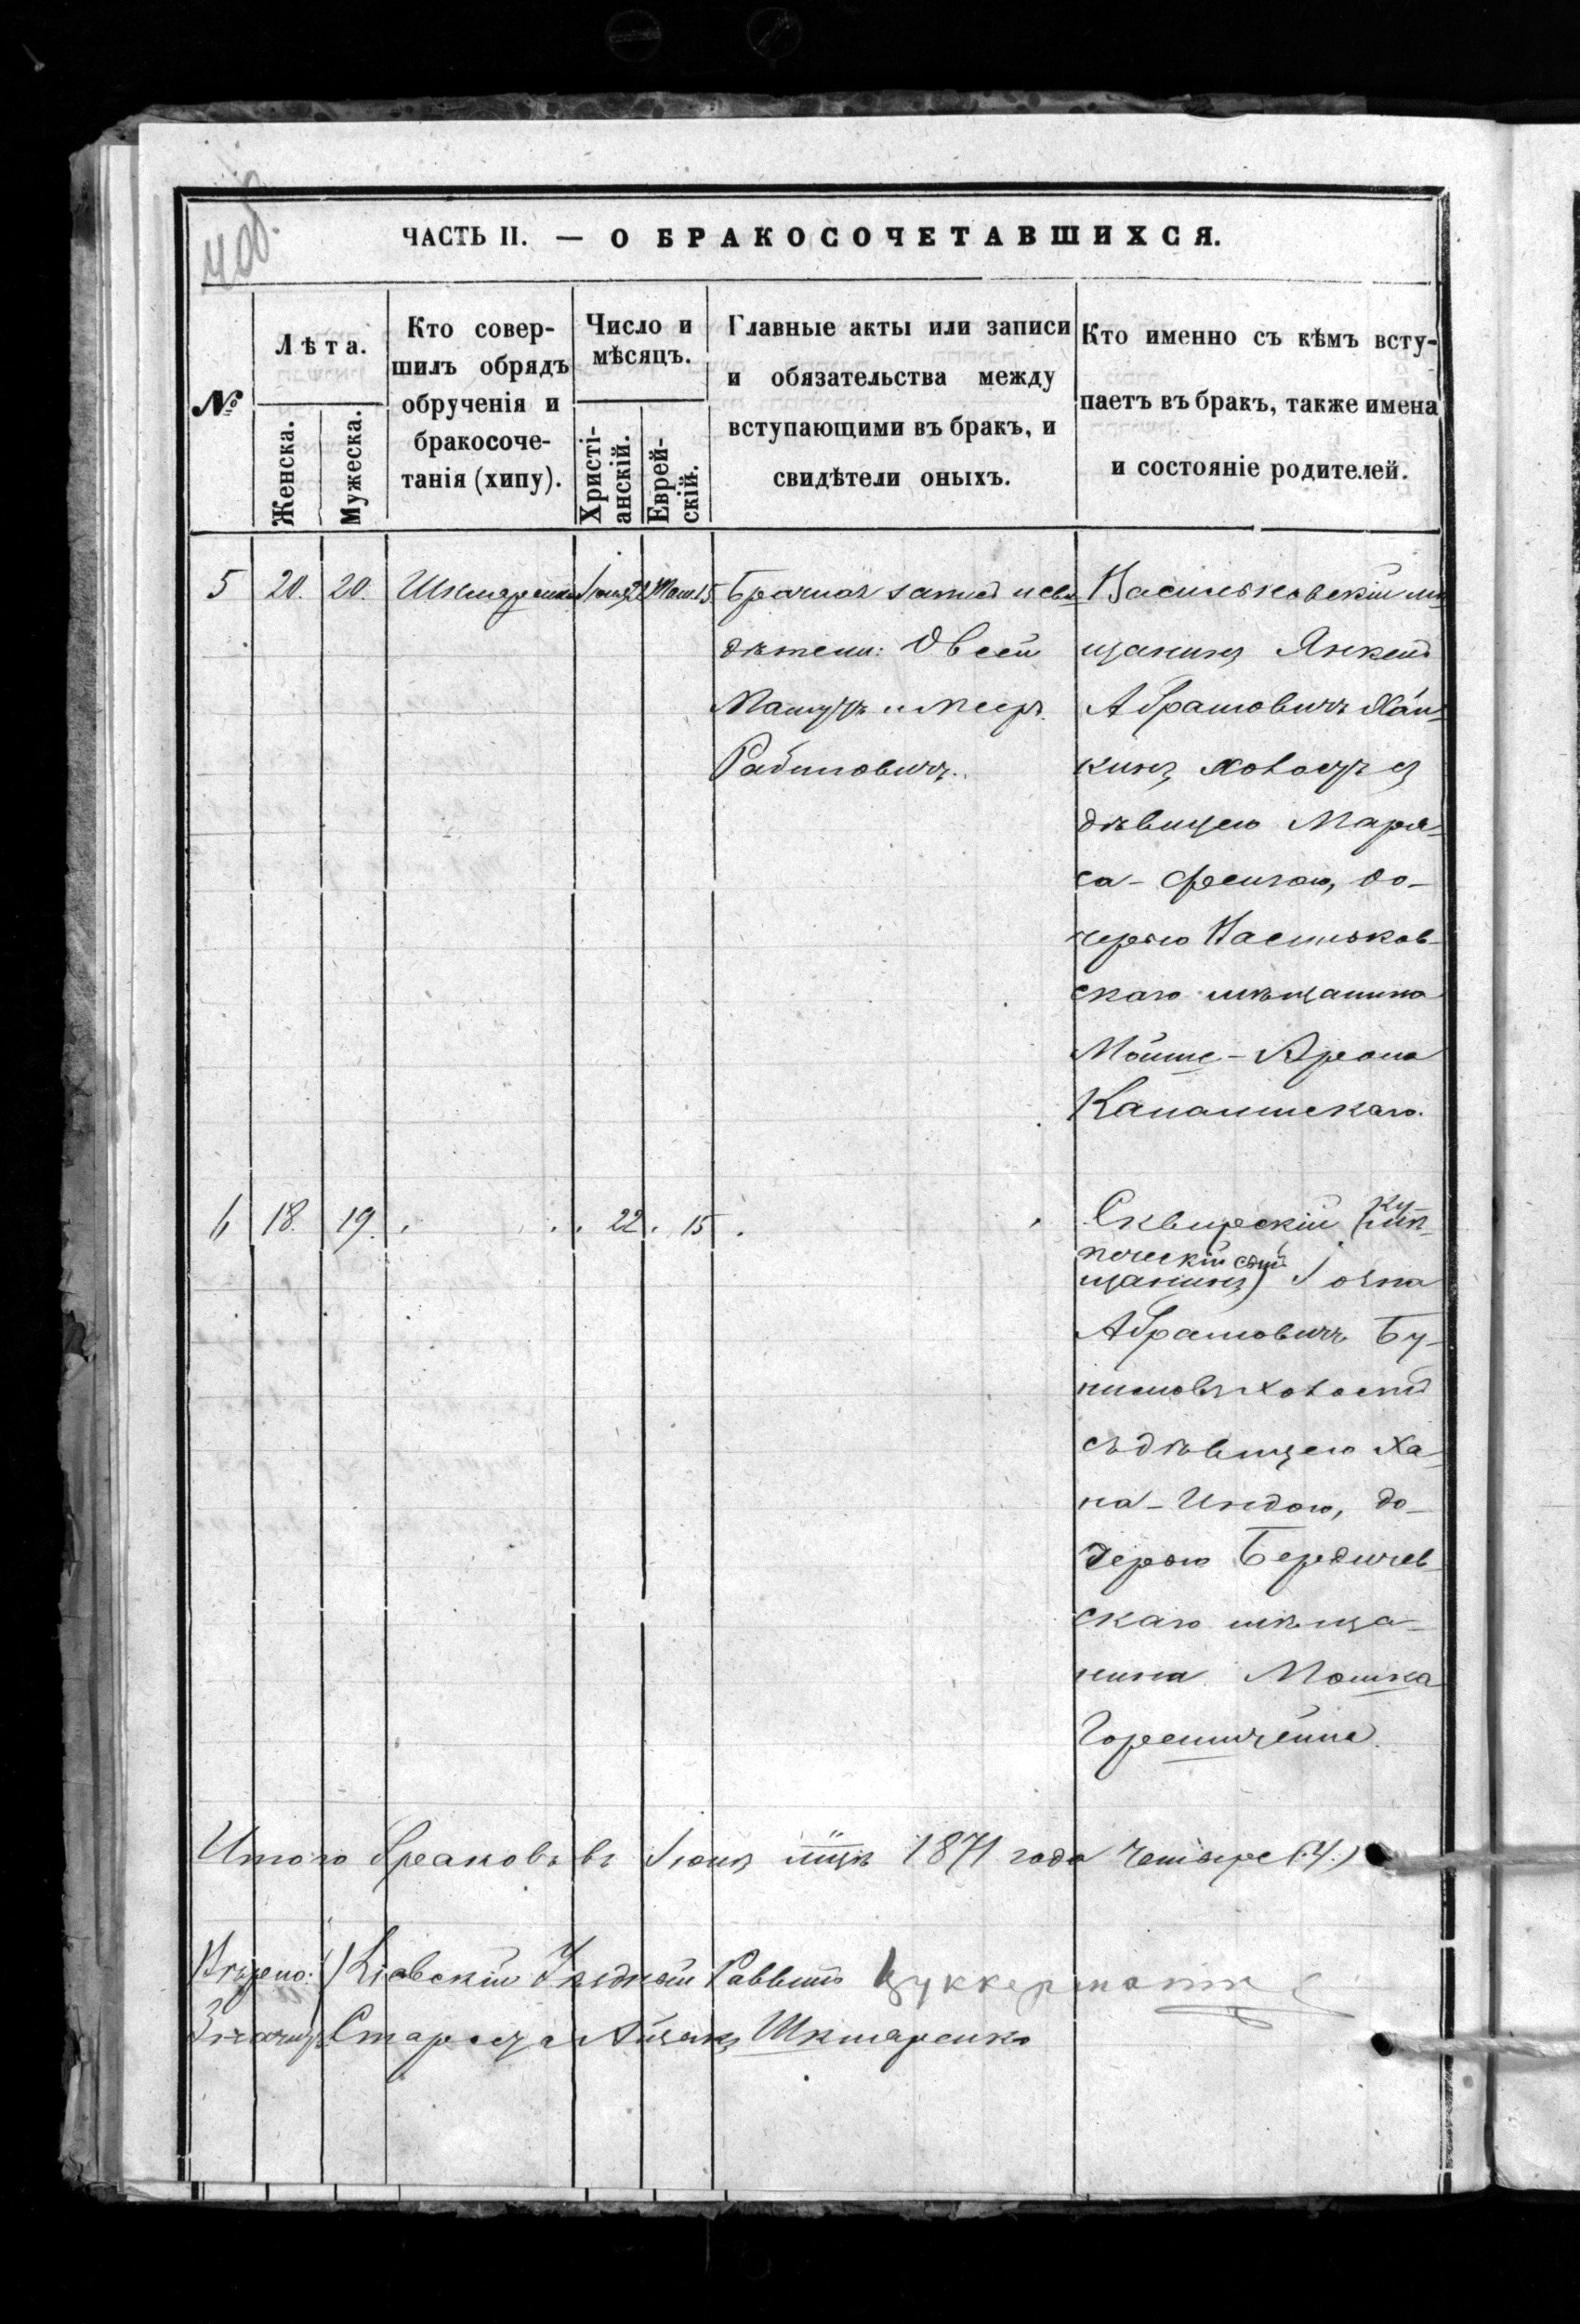 4об.
ЧАСТЬ II. — О БРАКОСОЧЕТАВШИХСЯ.
№
Лѣта.
Женска.
Мужеска.
Кто совер-
шилъ обрядъ
обрученія и
бракосоче-
танія (хипу).
Число и
мѣсяцъ.
Христі-
анскій.
Еврей-
скій.
Главные акты или записи
и обязательства между
вступающими въ бракъ, и
свидѣтели оныхъ.
Кто именно съ кѣмъ всту-
паетъ въ бракъ, также имена
и состояніе родителей.
5 20. 20. Шкляренко Іюня 22 Там. 15.
Брачная запись и сви-
дѣтели: Овсей
и Меер
Рабиновичъ.
Васильковскій мѣ-
щанинъ Янкель
Абрамовичъ Хаи-
кинъ холостъ съ
дѣвицею Маря-
са-Фейгою, до-
черью Васильков-
скаго мѣщанина
Мойше-Арона
Капашскаго.
6 18. 19. 22 15
Сквирскій (мѣ-
щанинъ) Іосна
ку-
печескій сынъ
Абрамовичъ Бу-
нимовъ холостъ
съ дѣвицею Ха-
на-Индою, до-
черью Бердичев-
скаго мѣща-
нина Мошка
Итого браковъ въ Іюнѣ м-цѣ 1871 года четыре (4.)
Вѣрно: Кіевскій Уѣздный Раввинъ Цуккерманъ
Староста Айзикъ Шкляренко